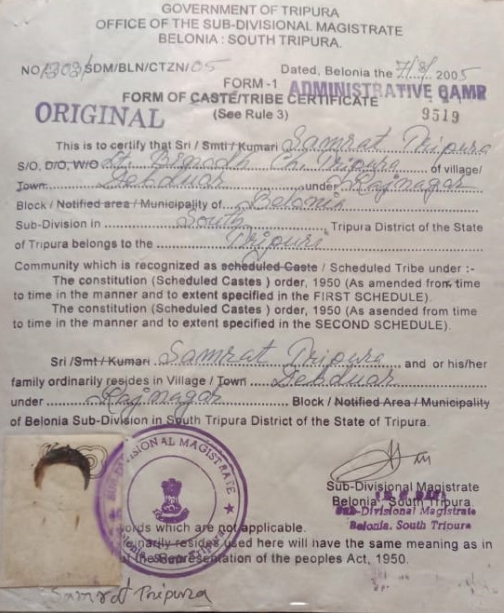 GOVERNMENT OF TRIPURA
OFFICE OF THE SUB-DIVISIONAL MAGISTRATE
BELONIA : SOUTH TRIPURA.
NO/1303/SDM/BLN/CTZN/05 Dated, Belonia the 7/8/2005
FORM -1 ADMINISTRATIVE CAMP
ORIGINAL FORM OF CASTE/TRIBE CERTIFICATE 9519
(See Rule 3)
This is to certify that Sri / Smti / Kumari Samrat Tripura
S/O, D/O, W/O Ch. Tripura of village/
Town Debduar under Rajnagar
Block / Notified area / Municipality of Belonia
Sub-Division in South Tripura District of the State
of Tripura belongs to the Tripuri
Community which is recognized as scheduled Caste / Scheduled Tribe under :-
The constitution (Scheduled Castes ) order, 1950 (As amended from time
to time in the manner and to extent specified in the FIRST SCHEDULE).
The constitution (Scheduled Castes ) order, 1950 (As asended from time
to time in the manner and to extent specified in the SECOND SCHEDULE).
Sri /Smt / Kumari Samrat Tripura and or his/her
family ordinarily resides in Village / Town Debduar
under Rajnagar Block / Notified Area / Municipality
of Belonia Sub-Division in South Tripura District of the State of Tripura.
SUB-DIVISIONAL MAGISTRATE
Belonia South Tripura
Sub-Divisional Magistrate
Belonia, South Tripura
Sub-Divisional Magistrate
Belonia. South Tripura
words which are not applicable.
ordinarily resides used here will have the same meaning as in
the Representation of the peoples Act, 1950.
Samrat Tripura